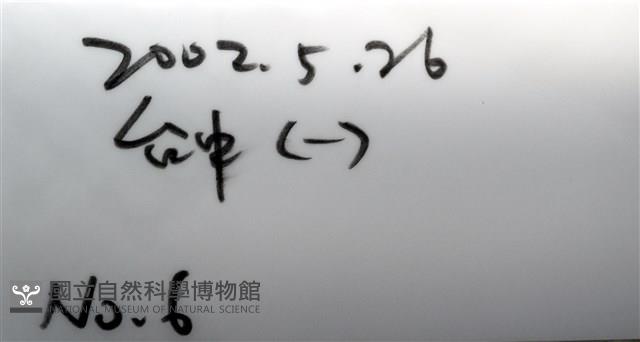 2002.5.26
台中(一)
國立自然科學博物館
NATIONAL MUSEUM OF NATURAL SCIENCE
No.6